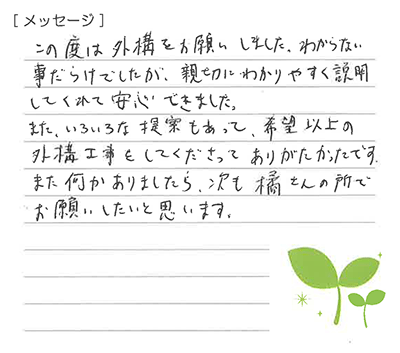 [ メッセージ ]
この度は外構をお願いしました、わからない
事だらけでしたが、親切にわかりやすく説明
してくれて安心できました。
また、いろいろな提案もあって、希望以上の
外構工事をしてくださってありがたかったです。
また何かありましたら、次も橘さんの所で
お願いしたいと思います。